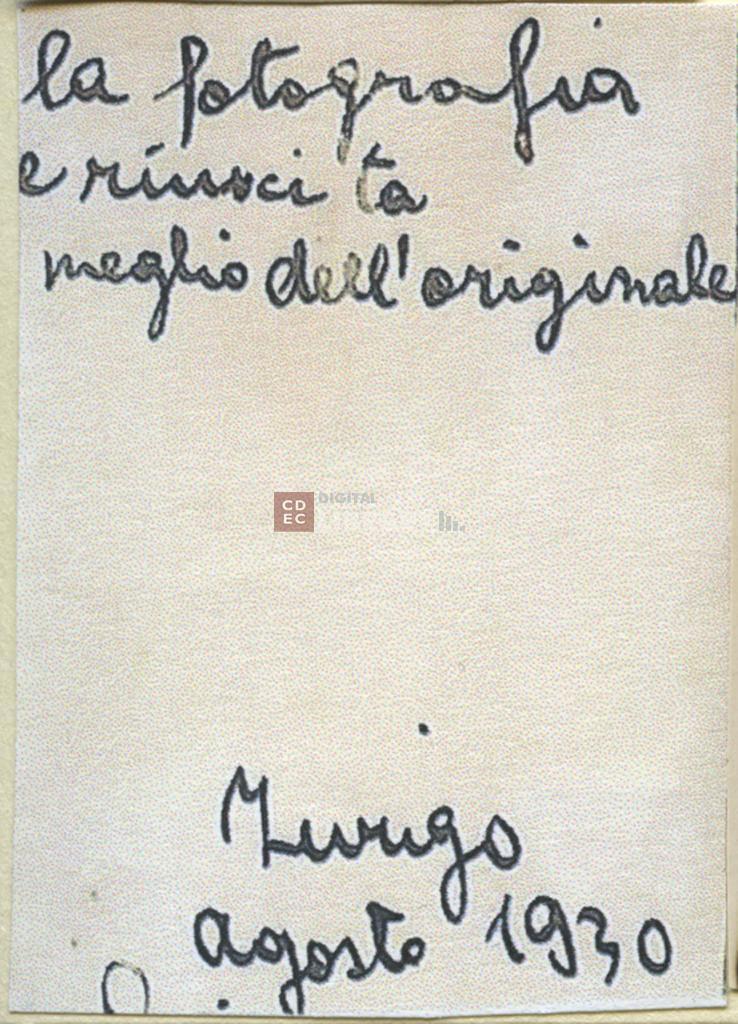 la fotografia
e riuscita
meglio dell'originale
CD
EC
DIGITAL
Zurigo
agosto 1930